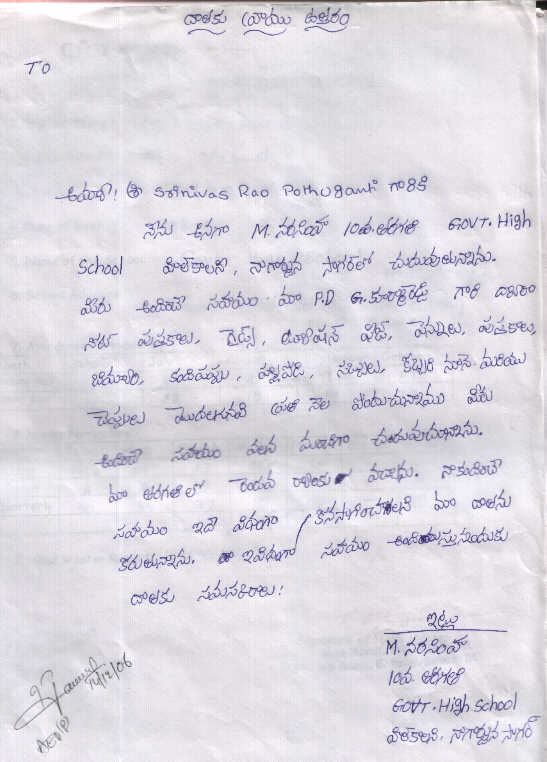 దాతకు వ్రాయు ఉత్తరం
TO
ఆయ్యా! శ్రీ Srinivas Rao Pothuganti గారికి
నేను అనగా M. నరసింహా 10వ. తరగతి GOVT. High
School హిల్‌కాలని, నాగార్జున సాగర్‌లో చదువుతున్నాను.
మీరు అందించే సహాయం మా P.D G. గారి ద్వారా
నోట్ పుస్తకాలు, డ్రెస్స్, ట్యూషన్ ఫీజ్, పెన్నులు, పుస్తకాలు,
బియ్యం, కందిపప్పు, సబ్బులు, కొబ్బరి నూనె మరియు
చెప్పులు మొదలగునవి ప్రతి నెల పొందుచున్నాము మీరు
అందించే సహాయం వలన మంచిగా చదువుచున్నాను.
మా తరగతి లో రెండవ ర్యాంకు వచ్చాను. నాకందించే
సహాయం ఇదే విధంగా కొనసాగించాలని మా దాతను
కోరుతున్నాను. ఇవిధంగా సహాయం అందిస్తున్నందుకు
దాతకు నమస్కారాలు!
ఇట్లు
M. నరసింహా
10వ. తరగతి
GOVT. High School
హిల్‌కాలని, నాగార్జున సాగర్
14/12/06